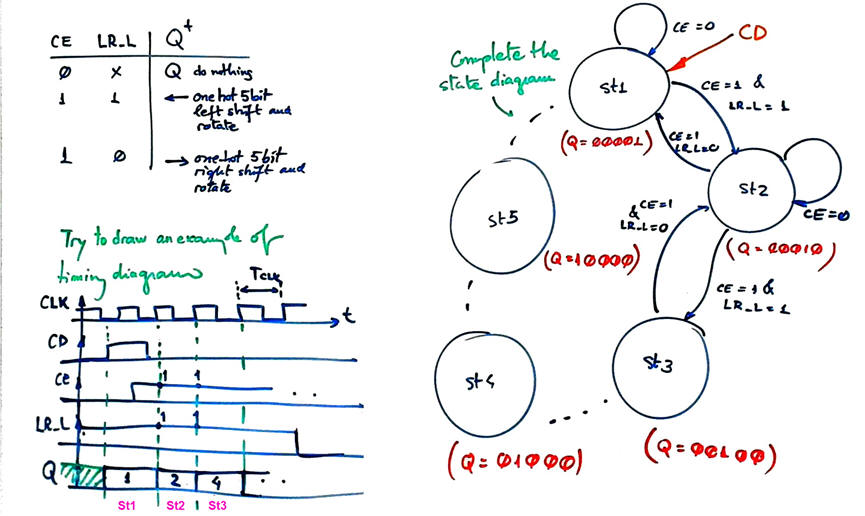 CE LR_L Q+
0 x Q do nothing
1 1 ← one hot 5bit
left shift and
rotate
1 0 → one-hot 5bit
right shift and
rotate
Try to draw an example of
timing diagram
TCLK
CLK
t
CD
CE
1 1
LR_L
1 1
Q 1 2 4
St1 St2 St3
Complete the
state diagram
CE=0
CD
st1
CE=1 &
LR_L=1
(Q=00001)
CE=1
LR_L=0
st2
CE=0
(Q=00010)
st5
(Q=10000)
CE=1
& LR_L=0
CE=1 &
LR_L=1
st3
(Q=00100)
st4
(Q=01000)